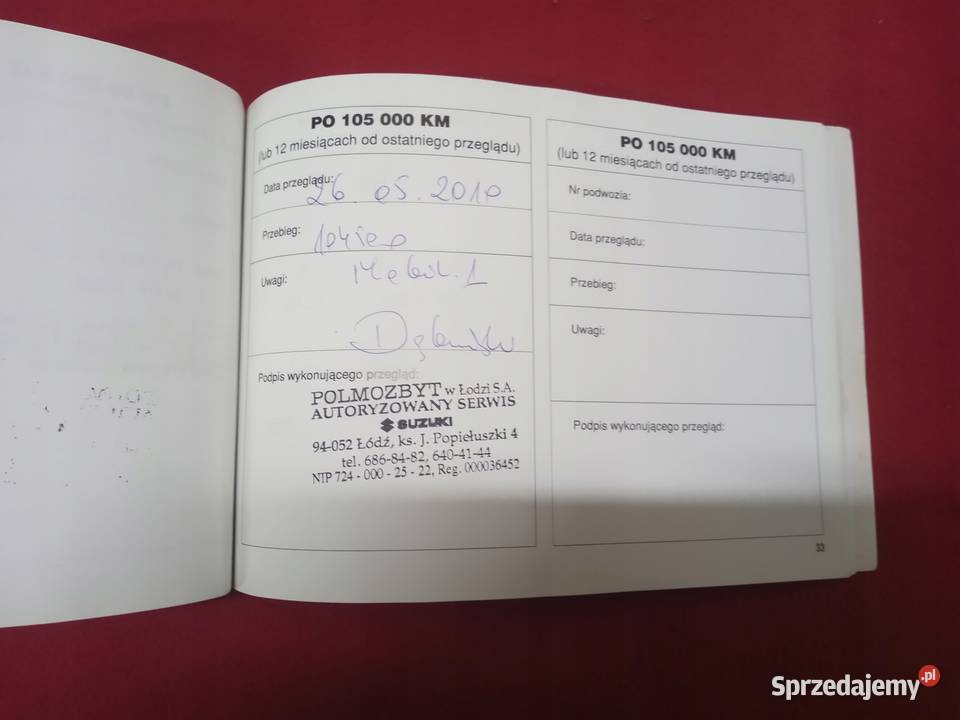 PO 105 000 KM
(lub 12 miesiącach od ostatniego przeglądu)
Data przeglądu: 26.05.2010
Przebieg:
Uwagi:
Podpis wykonującego przegląd:
POLMOZBYT w Łodzi S.A.
AUTORYZOWANY SERWIS
SUZUKI
94-052 Łódź, ks. J. Popiełuszki 4
tel. 686-84-82, 640-41-44
NIP 724 - 000 - 25 - 22, Reg. 000036452
PO 105 000 KM
(lub 12 miesiącach od ostatniego przeglądu)
Nr podwozia:
Data przeglądu:
Przebieg:
Uwagi:
Podpis wykonującego przegląd:
33
Sprzedajemy.pl